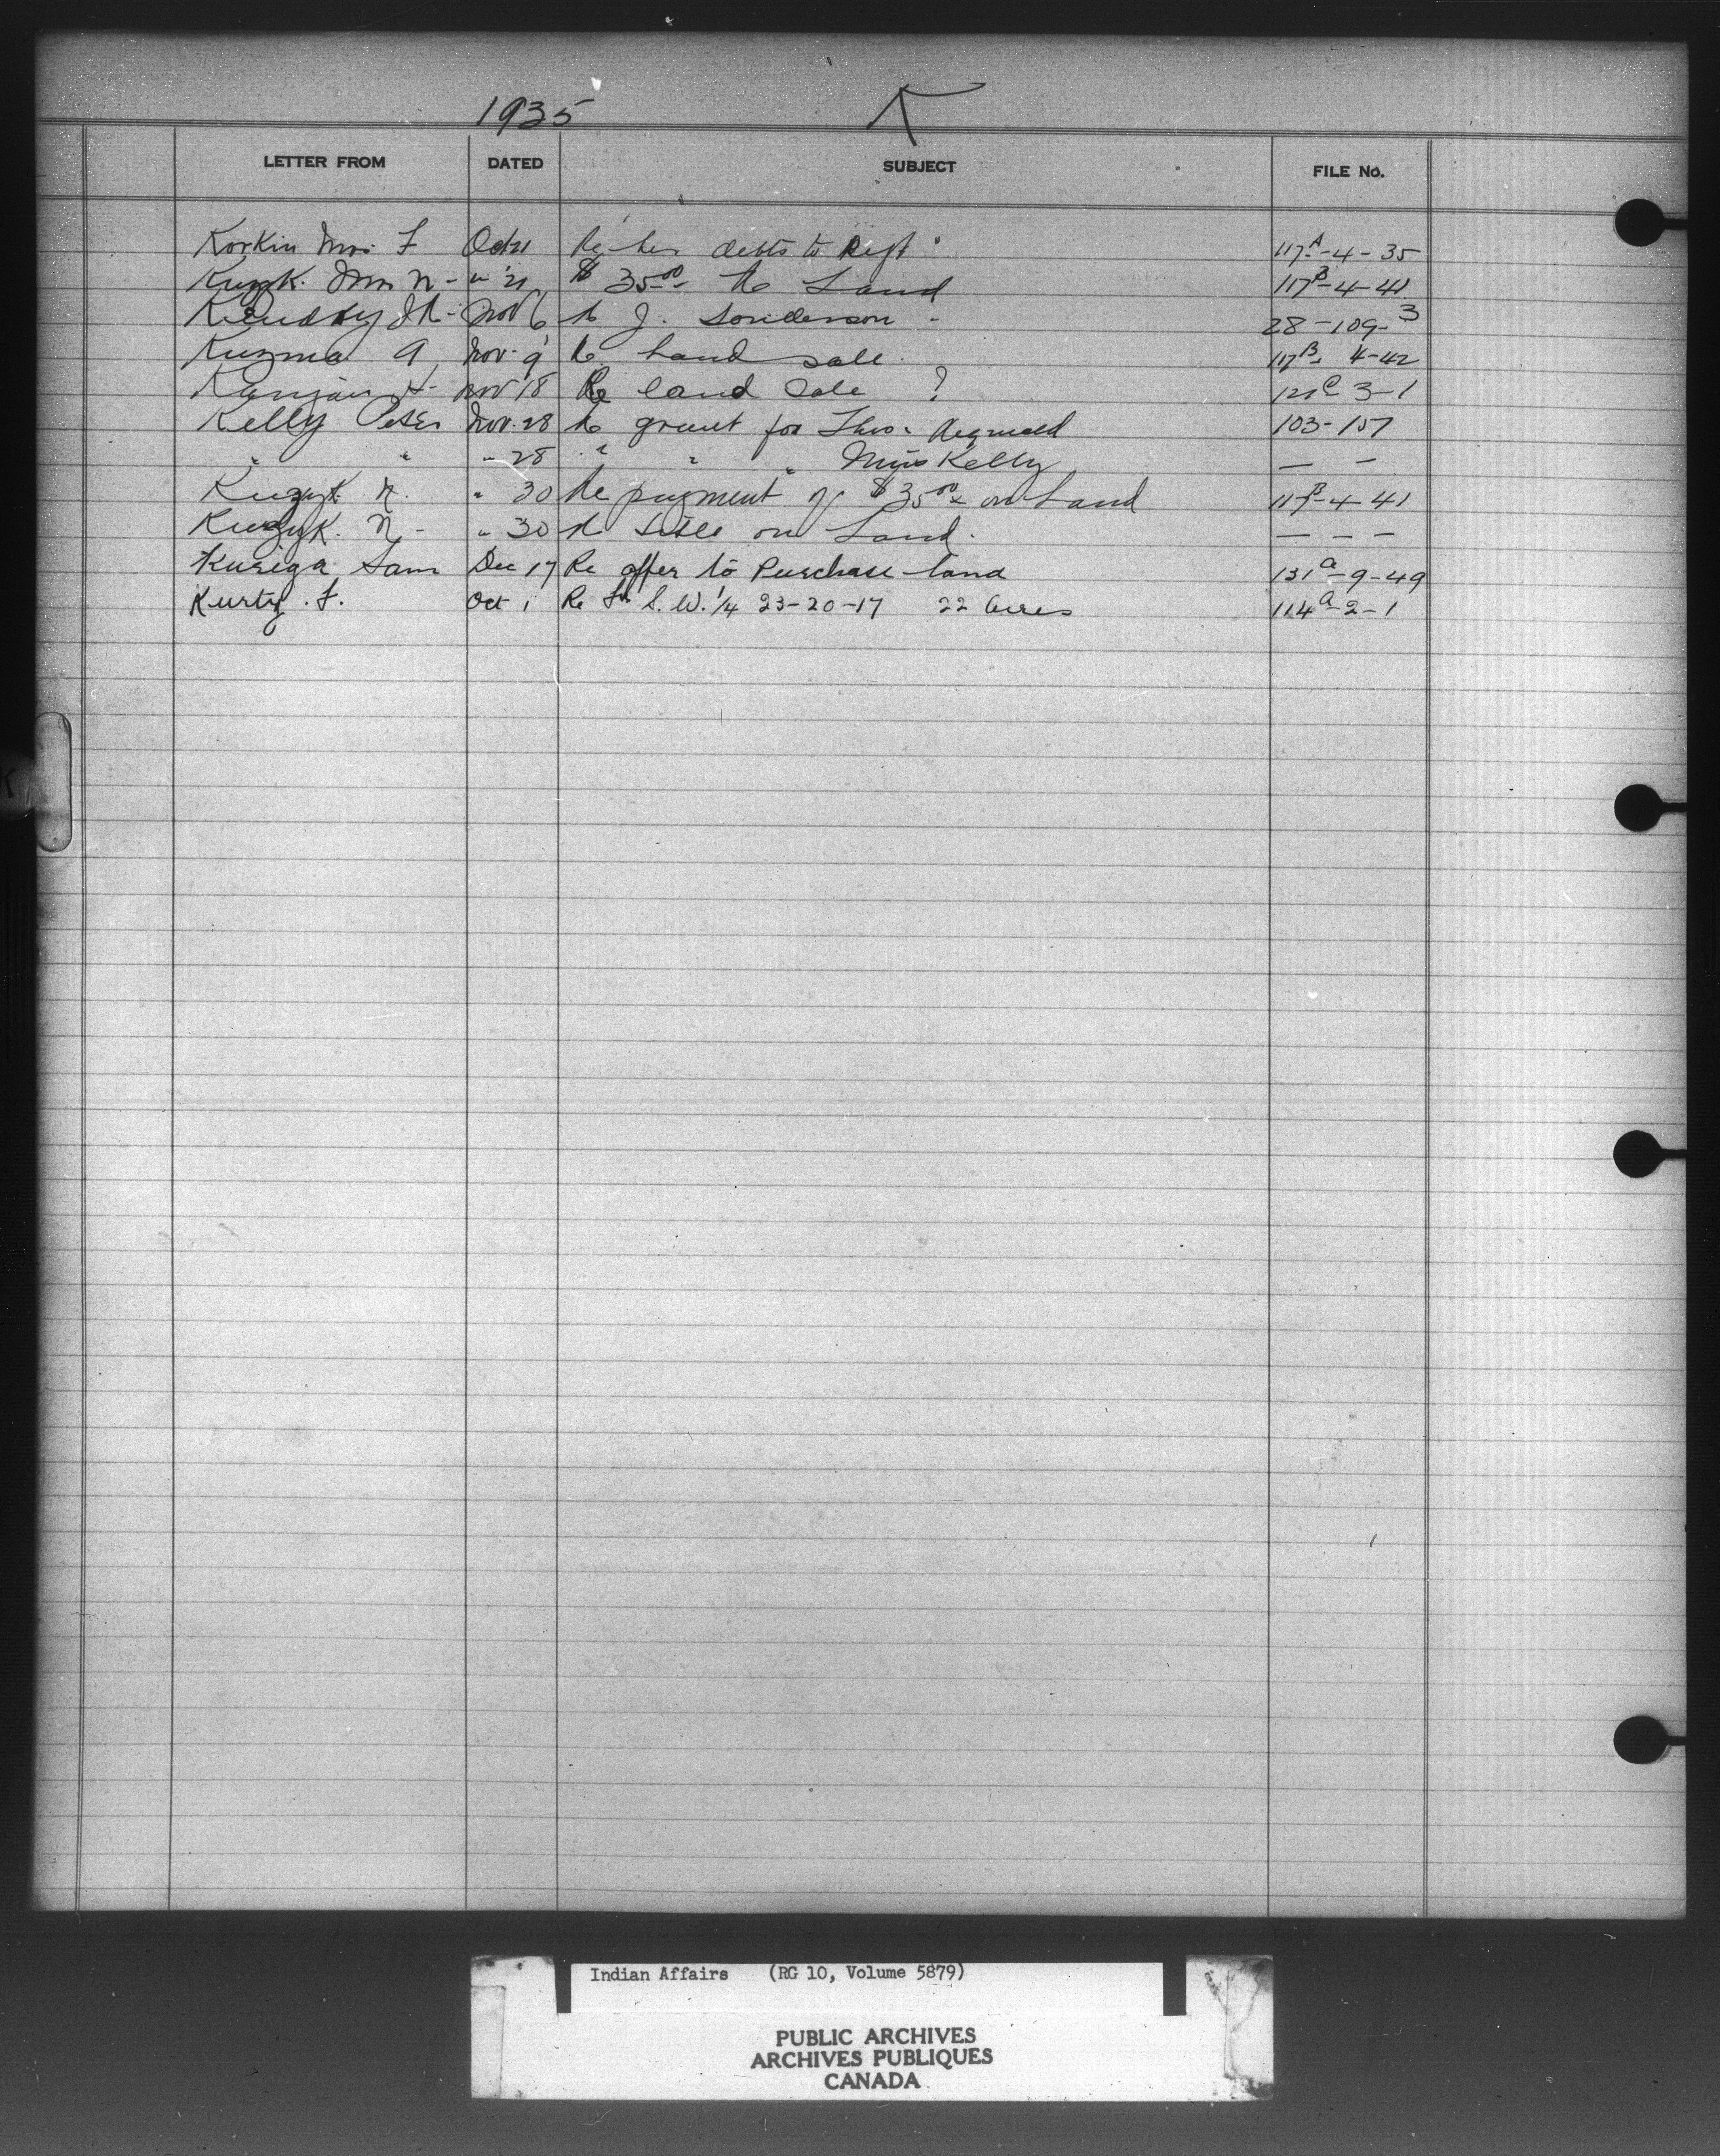 1935 K
LETTER FROM DATED SUBJECT FILE No.
Korkin Mrs. F Oct 21 Re her debts to Dept. 117A-4-35
Kuzyk. Mrs N - " 21 $35.00 Re Land 117B-4-41
Nov 6 Re J. 28-109-3
Kuzma A Nov. 9 Re Land sale. 117B- 4-42
H- Nov 18 Re land Sale ? 121C 3-1
Kelly Peter Nov. 28 Re grant for Thos. Reginald 103-157
" " " 28 " " " Miss Kelly — —
Kuzyk N. " 30 Re payment of $35.00 on Land 117B-4-41
Kuzyk. N - " 30 Re title on Land. — — —
Kuriga Sam Dec 17 Re offer to Purchase land 131a-9-49
Kurtz. F. Oct 1 Re S.W. 1/4 23-20-17 22 Acres 114a-2-1
K
Indian Affairs (RG 10, Volume 5879)
PUBLIC ARCHIVES
ARCHIVES PUBLIQUES
CANADA